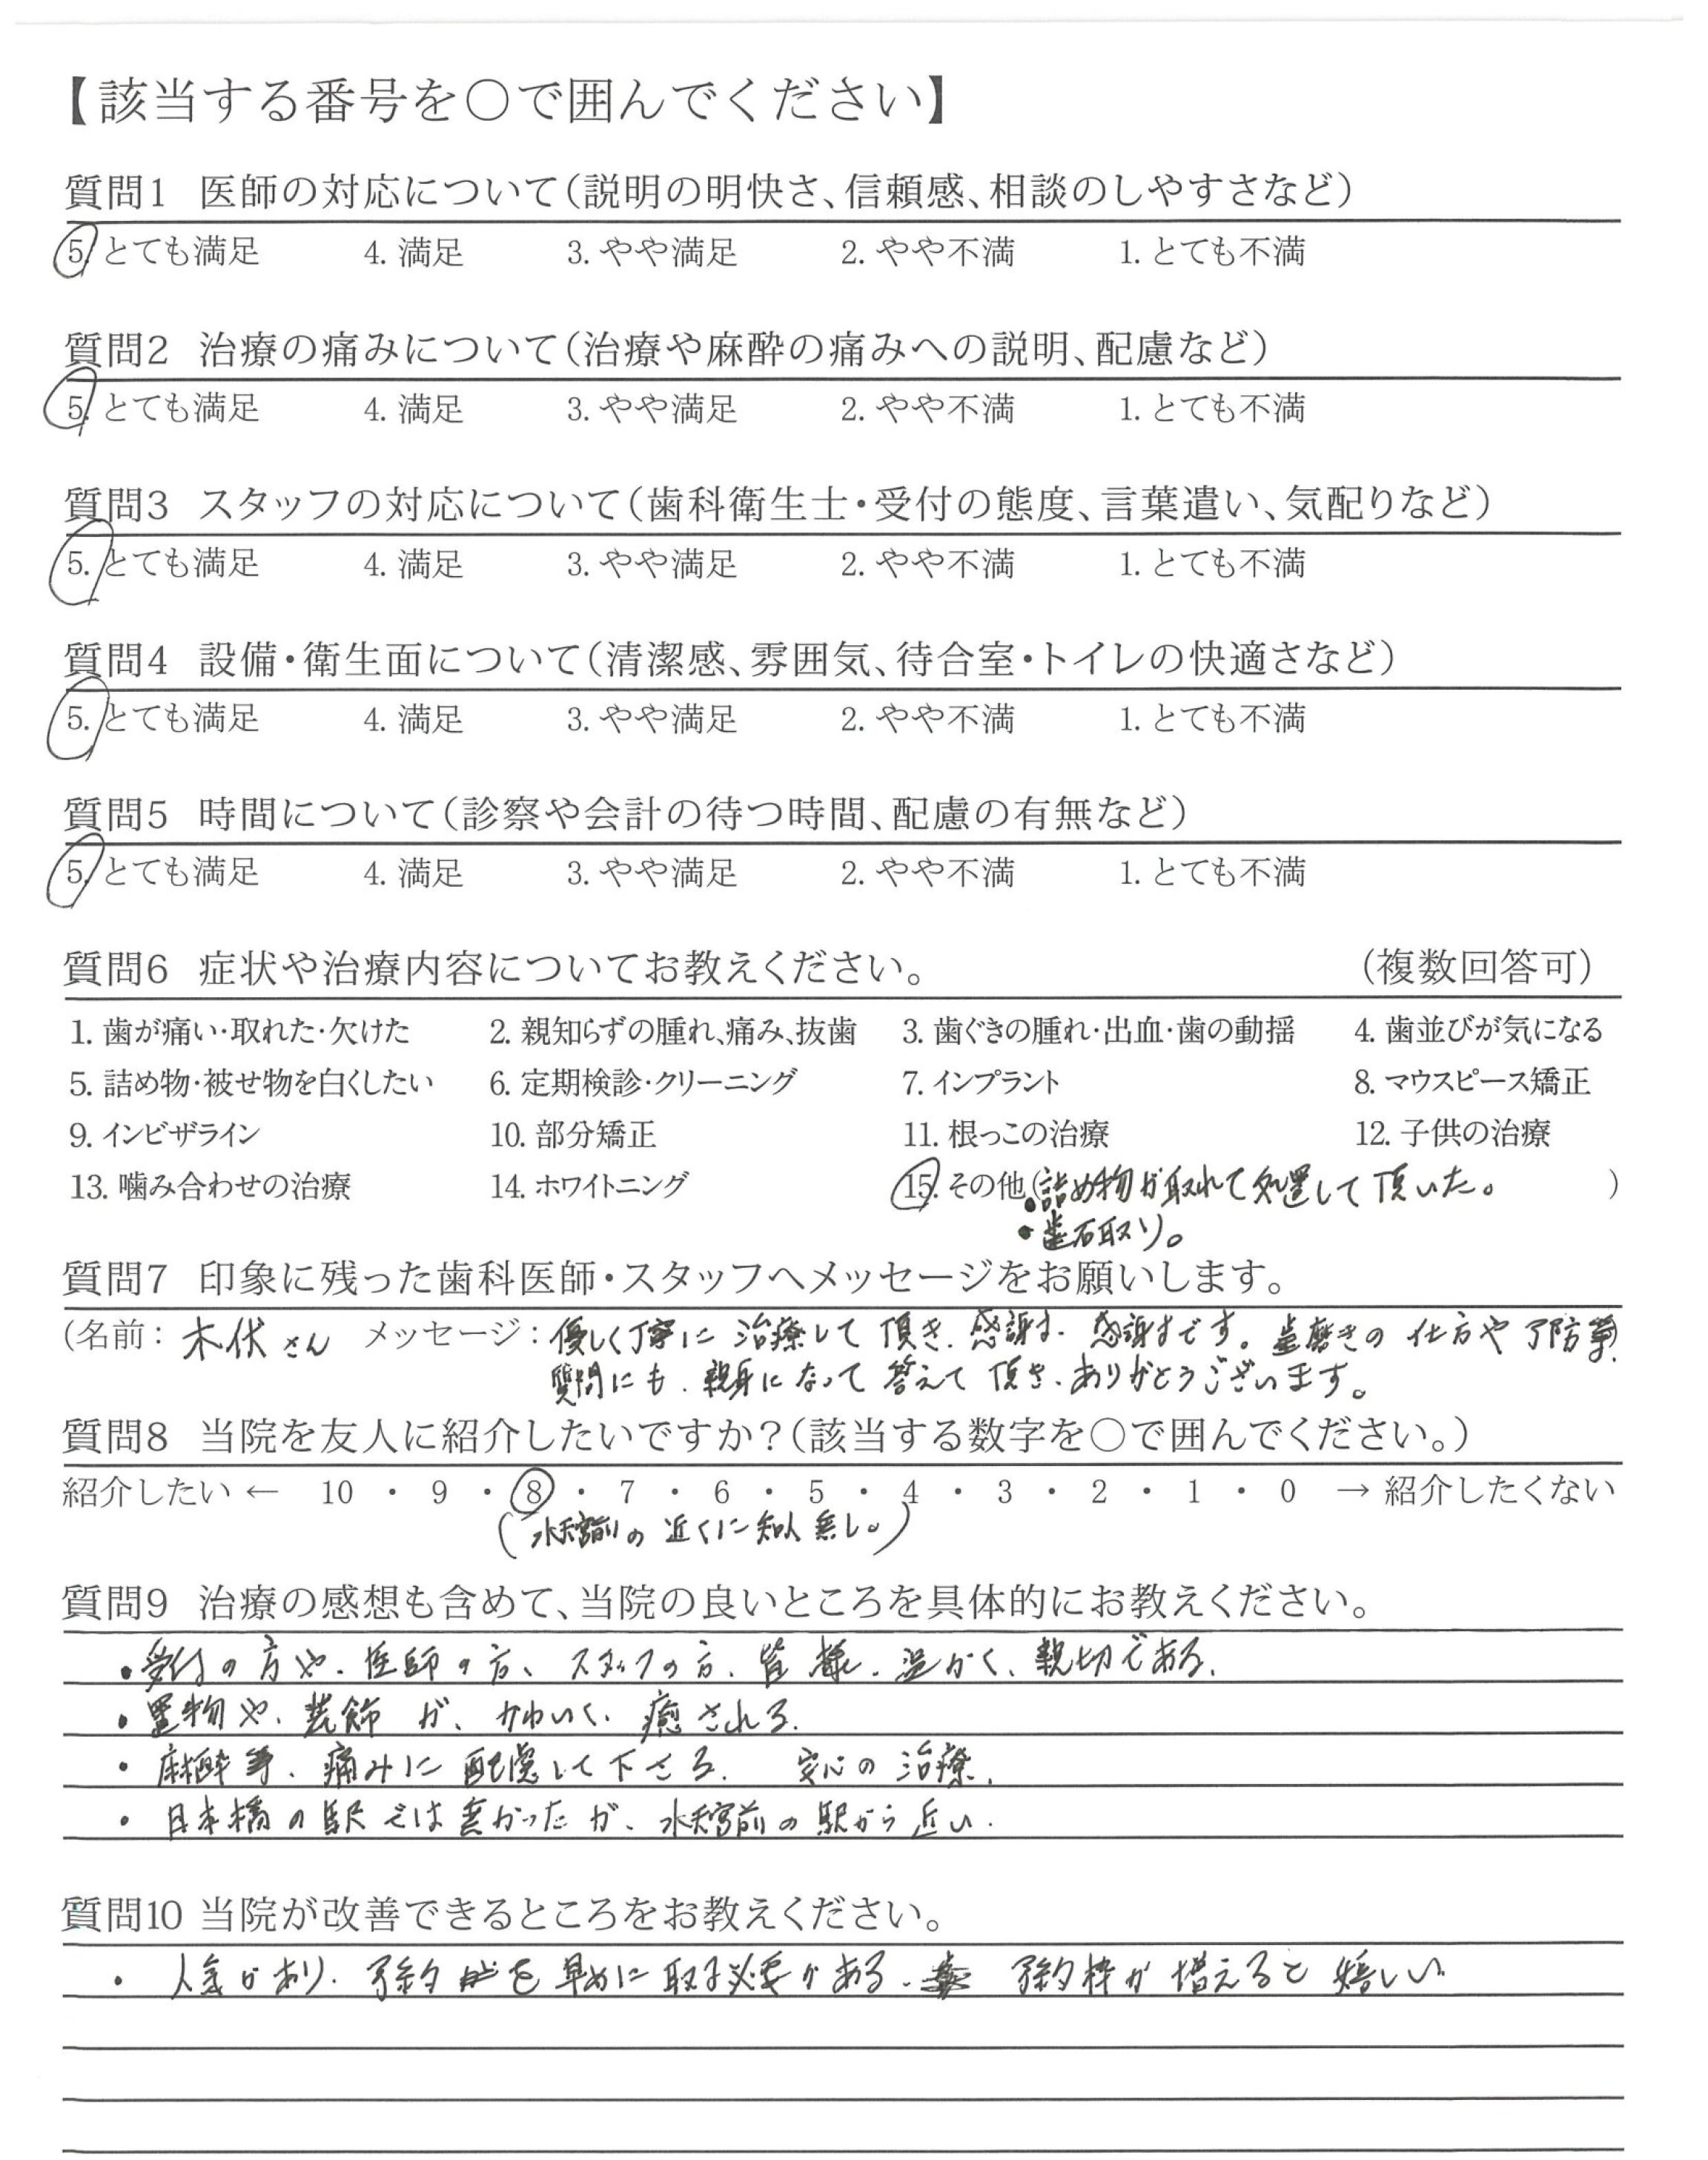 【該当する番号を○で囲んでください】
質問1 医師の対応について(説明の明快さ、信頼感、相談のしやすさなど)
5. とても満足 4. 満足 3. やや満足 2. やや不満 1. とても不満
質問2 治療の痛みについて(治療や麻酔の痛みへの説明、配慮など)
5. とても満足 4. 満足 3. やや満足 2. やや不満 1. とても不満
質問3 スタッフの対応について(歯科衛生士・受付の態度、言葉遣い、気配りなど)
5. とても満足 4. 満足 3. やや満足 2. やや不満 1. とても不満
質問4 設備・衛生面について(清潔感、雰囲気、待合室・トイレの快適さなど)
5. とても満足 4. 満足 3. やや満足 2. やや不満 1. とても不満
質問5 時間について(診察や会計の待つ時間、配慮の有無など)
5. とても満足 4. 満足 3. やや満足 2. やや不満 1. とても不満
質問6 症状や治療内容についてお教えください。 (複数回答可)
1. 歯が痛い・取れた・欠けた 2. 親知らずの腫れ、痛み、抜歯 3. 歯ぐきの腫れ・出血・歯の動揺 4. 歯並びが気になる
5. 詰め物・被せ物を白くしたい 6. 定期検診・クリーニング 7. インプラント 8. マウスピース矯正
9. インビザライン 10. 部分矯正 11. 根っこの治療 12. 子供の治療
13. 噛み合わせの治療 14. ホワイトニング 15. その他(・詰め物が取れて処置して頂いた。 )
・歯石取り。
質問7 印象に残った歯科医師・スタッフへメッセージをお願いします。
(名前: 木伏さん メッセージ: 優しく丁寧に治療して頂き、感謝、感謝です。歯磨きの仕方や予防等、
質問にも、親身になって答えて頂き、ありがとうございます。
質問8 当院を友人に紹介したいですか?(該当する数字を○で囲んでください。)
紹介したい ← 10 ・ 9 ・ 8 ・ 7 ・ 6 ・ 5 ・ 4 ・ 3 ・ 2 ・ 1 ・ 0 → 紹介したくない
(水天宮前の近くに知人無し。)
質問9 治療の感想も含めて、当院の良いところを具体的にお教えください。
・受付の方や、医師の方、スタッフの方、皆様、温かく、親切である。
・置物や、装飾が、かわいく、癒される。
・麻酔等、痛みに配慮して下さる。 安心の治療。
・日本橋の駅では無かったが、水天宮前の駅から近い。
質問10 当院が改善できるところをお教えください。
・人気があり、予約を早めに取る必要がある。 予約枠が増えると嬉しい